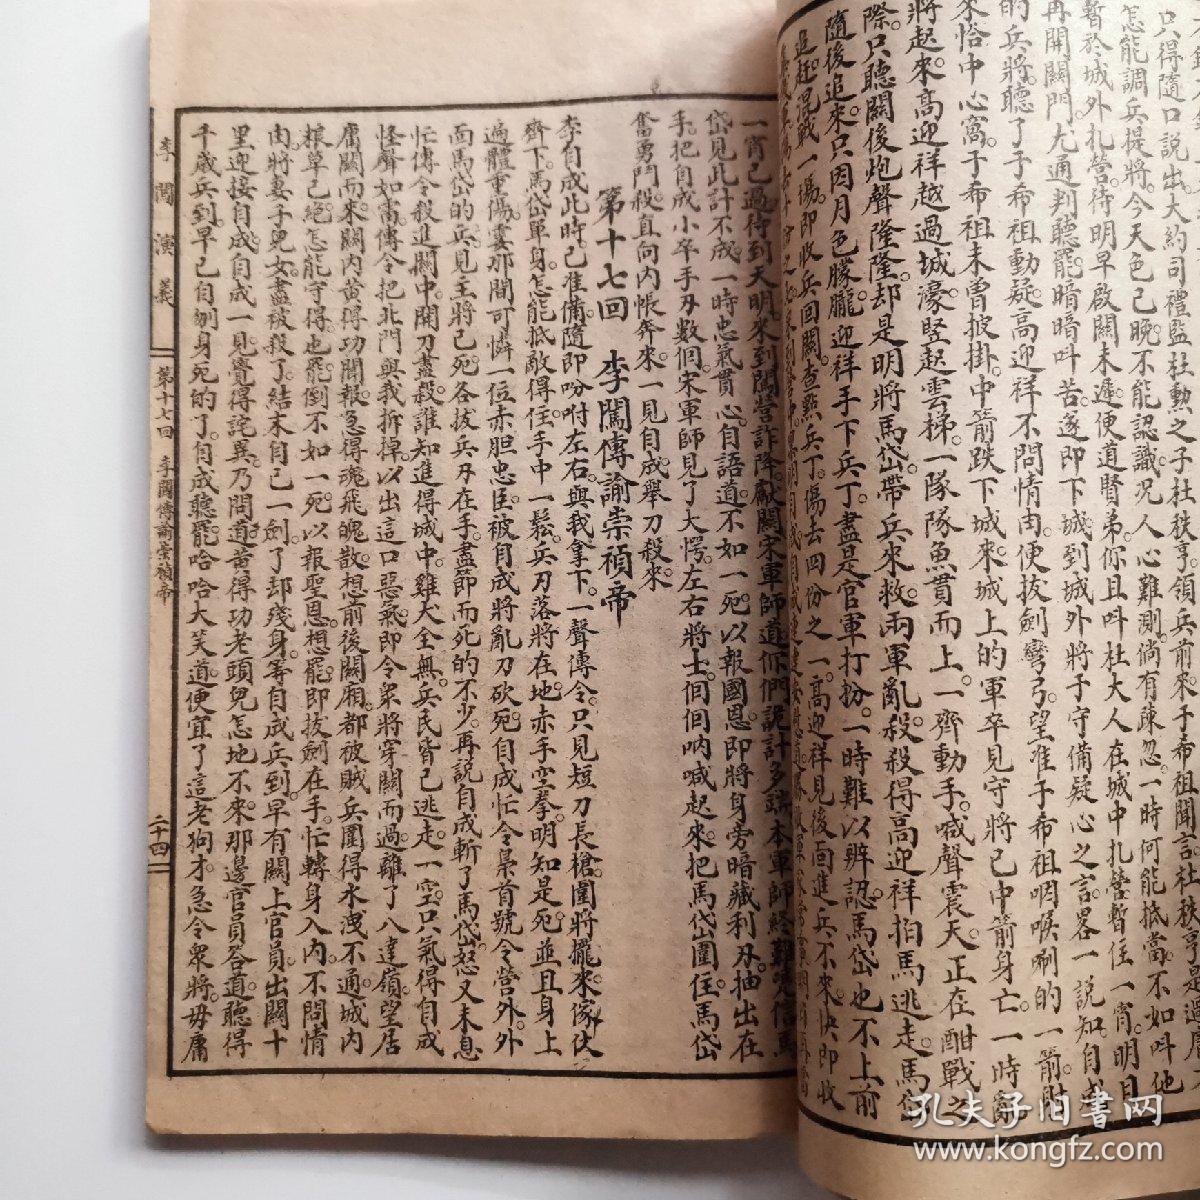 只得隨口說出大約司禮監杜勳之子杜秩亨領兵前來于希祖聞言杜秩亨是
怎能調兵提將今天色已晚不能認識况人心難測倘有疎忽一時何能抵當不如叫他
暫於城外扎營待明早啟關未遲便道賢弟你且叫杜大人在城中扎營暫住一宵明日
再開關門尤通判聽罷暗暗叫苦遂即下城到城外將于守備疑心之言畧一說知自成
的兵將聽了于希祖動疑高迎祥不問情由便拔劍彎弓望准于希祖啁喉唰的一箭射
來恰中心窩于希祖未曾披掛中箭跌下城來城上的軍卒見守將已中箭身亡一時鬆
將起來高迎祥越過城濠竪起雲梯一隊隊魚貫而上一齊動手喊聲震天正在酣戰之
際只聽關後炮聲隆隆却是明將馬岱帶兵來救兩軍亂殺殺得高迎祥拍馬逃走馬岱
隨後追來只因月色朦朧迎祥手下兵丁盡是官軍打扮一時難以辨認馬岱也不上前
追赶混戰一塲即收兵回關查點兵丁傷去四份之一高迎祥見後面進兵不來快即收
一宵已過待到天明來到闖營詐降獻關宋軍師道你們詭計多端本軍師終難凭信馬
岱見此計不成一時忠氣貫心自語道不如一死以報國恩即將身旁暗藏利刃抽出在
手把自成小卒手刃數個宋軍師見了大愕左右將士個個吶喊起來把馬岱圍住馬岱
奮勇鬥殺直向内帳奔來一見自成舉刀殺來
第十七回 李闖傳諭崇禎帝
李自成此時已准備隨即吩咐左右與我拿下一聲傳令只見短刀長槍圍將攏來傢伙
齊下馬岱單身怎能抵敵得住手中一鬆兵刃落將在地赤手空拳明知是死並且身上
遍體重傷霎那間可憐一位赤胆忠臣被自成將亂刀砍死自成忙令梟首號令營外外
面馬岱的兵見主將已死各拔兵刃在手盡節而死的不少再說自成斬了馬岱怒又未息
忙傳令殺進關中開刀盡殺誰知進得城中雞犬全無兵民皆已逃走一空只氣得自成
怪聲如雷傳令把北門與我拆掉以出這口惡氣即令衆將穿關而過離了八達嶺望居
庸關而來關内黄得功聞報急得魂飛魄散想前後關廂都被賊兵圍得水洩不通城内
糧草已絕怎能守得也罷倒不如一死以報聖恩想罷即拔劍在手忙轉身入内不問情
由將妻子兒女盡被殺了結末自己一劍了却殘身等自成兵到早有關上官員出關十
里迎接自成自成一見覺得詫異乃問道黄得功老頭兒怎地不來那邊官員答道聽得
千歲兵到早已自刎身死的了自成聽罷哈哈大笑道便宜了這老狗才急令衆將毋庸
李闖演義 第十七回 李闖傳諭崇禎帝 二十四
孔夫子旧書网
www.kongfz.com